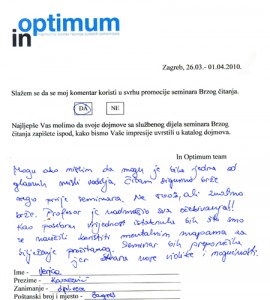 optimum
in
Zagreb, 26.03.- 01.04.2010.
Slažem se da se moj komentar koristi u svrhu promocije seminara Brzog čitanja.
DA
NE
Najljepše Vas molimo da svoje dojmove sa službenog dijela seminara Brzog
čitanja zapišete ispod, kako bismo Vaše impresije uvrstili u katalog dojmova.
In Optimum team
Mogu ako mislim da mogu je bila jedna od
glasnih misli vodilja. Čitam sigurno brže
nego prije seminara. Ne 500%, ali znatno
brže. Profesor je nadmašio sva očekivanja!
Kao posebnu vrijednost istaknula bih što smo
se naučili koristiti mentalnim mapama za
bilježenje pročitanog. Seminar bih preporučila
jer otvara nove vidike i mogućnosti.
Ime -
Prezime -
Zanimanje -
Poštanski broj i mjesto - Zagreb